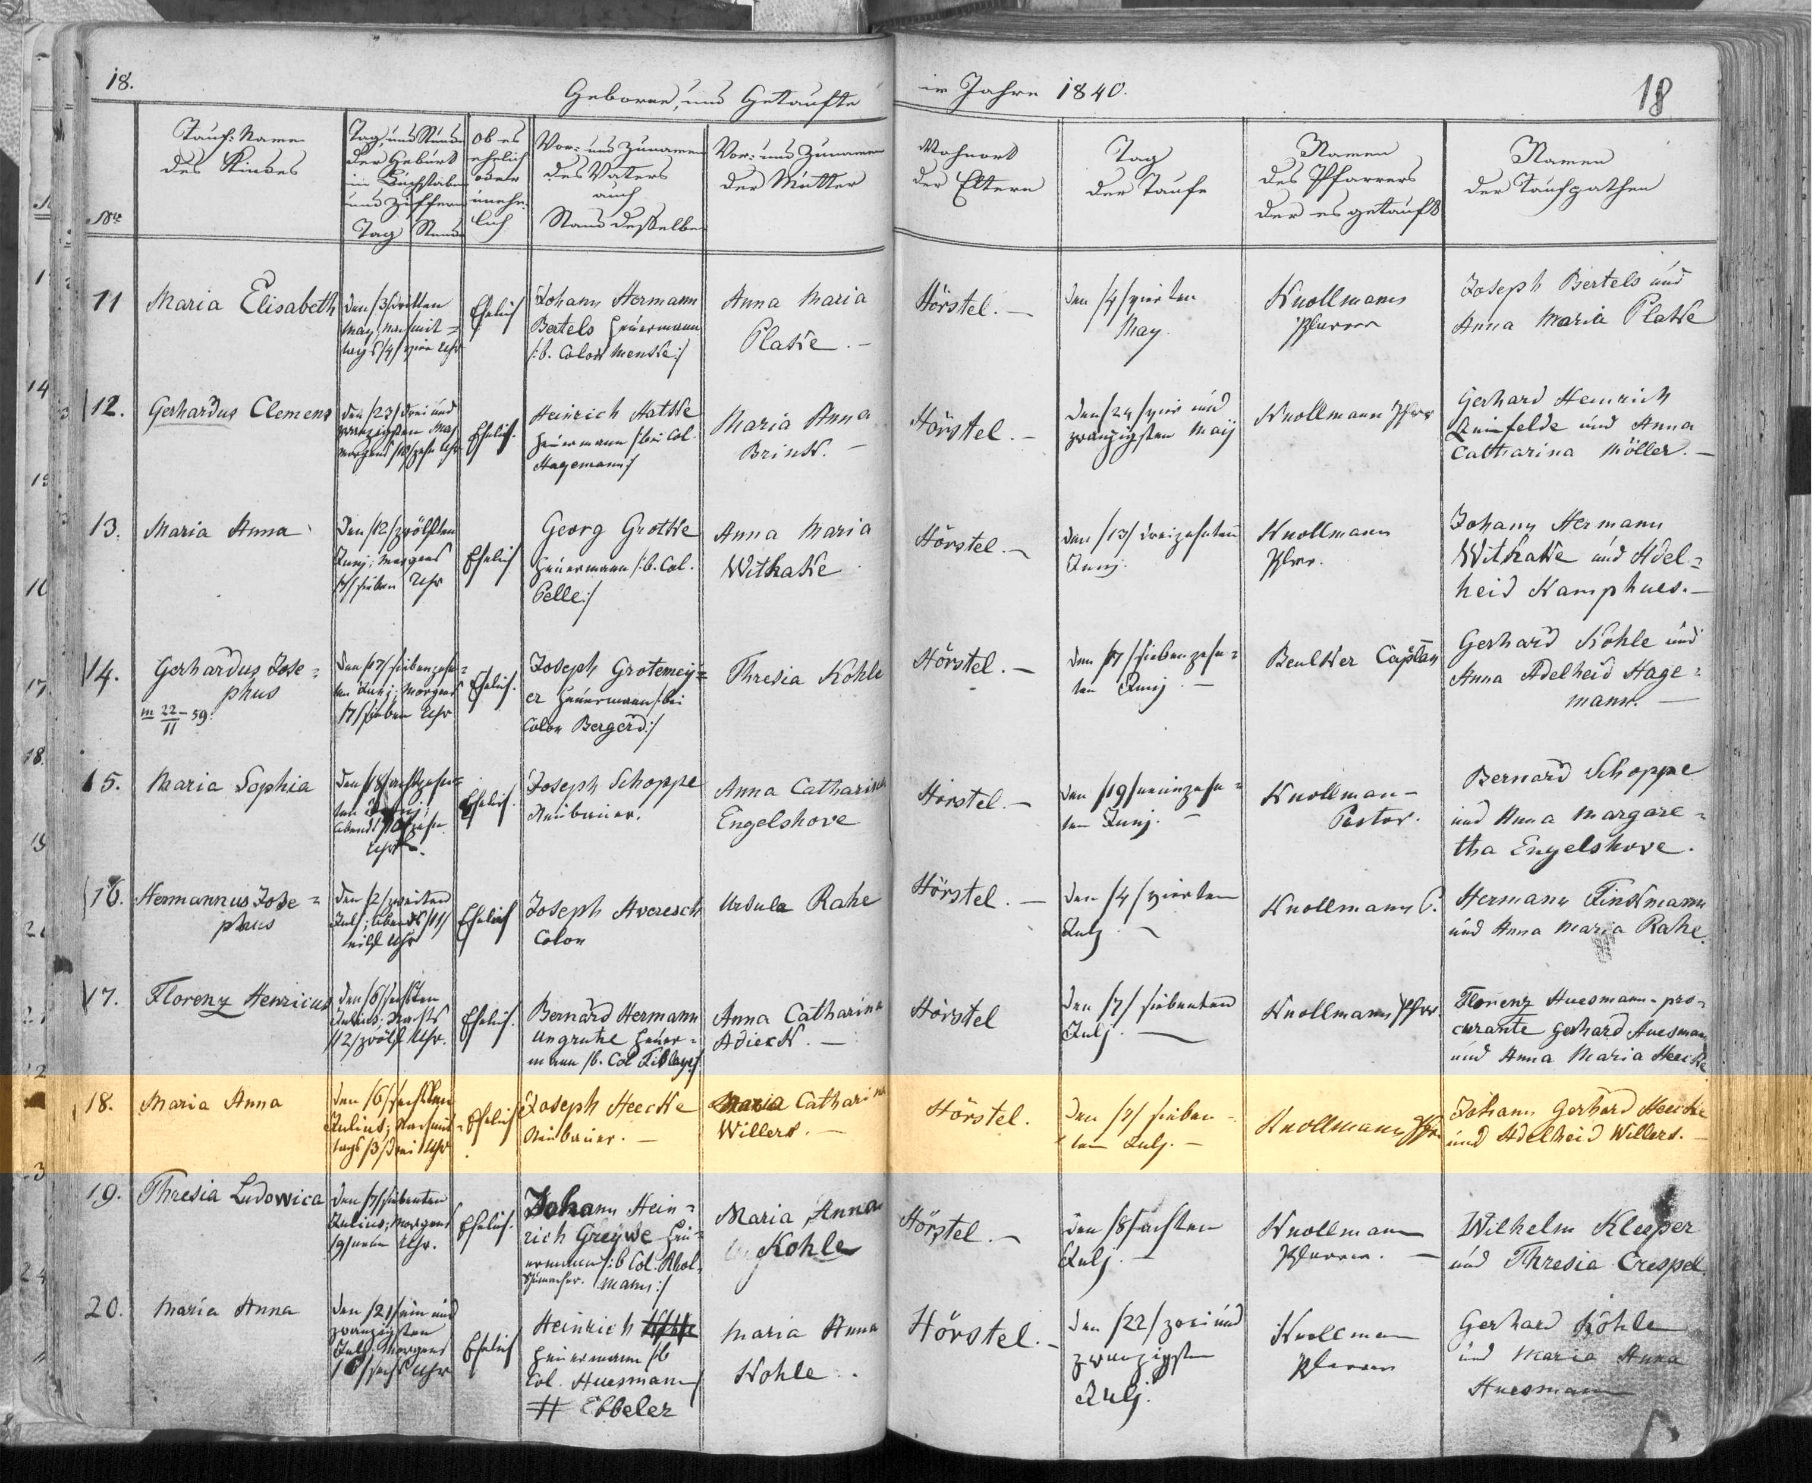 18.
Geborne, und Getaufte
im Jahre 1840.
18
Nro
Tauf-Name
des Kindes
Tag, und Stunde
der Geburt
in Buchstaben
und Ziffern
Tag Stunde
Ob es
ehelich
oder
unehe-
lich
Vor- und Zunamen
des Vaters
auch
Stand desselben
Vor- und Zunamen
der Mutter
Wohnort
der Eltern
Tag
der Taufe
Namen
des Pfarrers
der es getauft
Namen
der Taufpathen
11
Maria Elisabeth
den /3/ dritten
May; nachmit-
tags /4/ vier Uhr
Ehelich
Johann Hermann
Bertels Heuermann
/:b. Colon Menske:/
Anna Maria
Platke. -
Hörstel. -
den /4/ vierten
May.
Knollmann
Pfarrer
Joseph Bertels und
Anna Maria Platke
12.
Gerhardus Clemens
den /23/ drei und
zwanzigsten May
morgens /10/ zehn Uhr
Ehelich.
Heinrich Hatke
Heuermann /:bei Col.
Hagemann:/
Maria Anna
Brink. -
Hörstel. -
den /24/ vier und
zwanzigsten Maij
Knollmann Pfrr
Gerhard Heinrich
felde und Anna
Catharina Möller. -
13.
Maria Anna
Den /12/ zwölften
Junj; morgens
/7/ sieben Uhr
Ehelich
Georg Grotke
Heuermann /:b. Col.
Pelle:/
Anna Maria
Withake
Hörstel. -
den /13/ dreizehnten
Junj.
Knollmann
Pfrr.
Johann Hermann
Withake und Adel=
heid Kamphues. -
14.
Gerhardus Jose=
phus
m 22/11 - 59.
den /17/ siebenzehn=
ten Junj; Morgens
/7/ sieben Uhr
Ehelich.
Joseph Grotemey=
er Heuermann /:bei
Colon Bergerd:/
Thresia Kohle
Hörstel. -
den /17/ siebenzehn=
ten Junij. -
Beulker Caplan
Gerhard Kohle und
Anna Adelheid Hage=
mann. -
15.
Maria Sophia
den /18/ achtzehn=
ten Junj;
Abends /10/ zehn
Uhr -.
Ehelich.
Joseph Schoppe
Neubauer.
Anna Catharina
Engelshove
Hörstel. -
den /19/ neunzehn=
ten Junj. -
Knollman -
Pastor.
Bernard Schoppe
und Anna Margare=
tha Engelshove.
16.
Hermannus Jose=
phus
den /2/ zweiten
Julj; Abends /11/
eilf Uhr
Ehelich
Joseph Averesch
Colon
Ursula Rahe
Hörstel. -
den /4/ vierten
Julj. -
Knollmann P.
Hermann Finkmann
und Anna Maria Rahe.
17.
Florenz Henricus
den /6/ sechsten
Julius; Nachts
/12/ zwölf Uhr.
Ehelich.
Bernard Hermann
Ungruhe Heuer=
mann /:b. Col
Anna Catharina
Adick. -
Hörstel
Den /7/ siebenten
Julj. -
Knollmann Pfrr
Florenz Huesmann - pro=
curante Gerhard Huesman
und Anna Maria Heecke
18.
Maria Anna
den /6/ sechsten
Julius; Nachmit=
tags /3/ drei Uhr
Ehelich
Joseph Heecke
Neubauer. -
Maria Catharina
Willers. -
Hörstel.
Den /7/ sieben-
ten Julj. -
Knollmann Pfr
Johann Gerhard Heecke
und Adelheid Willers. -
19.
Thresia Ludowica
den /7/ siebenten
Julius; Morgens
/9/ neun Uhr.
Ehelich.
Johann Hein=
rich Greywe Heu=
ermann /:b Col:
mann:/
Maria Anna
Kohle
Hörstel. -
den /8/ achten
Julj. -
Knollmann
Pfarrer. -
Wilhelm Klesper
und Thresia Crespel.
20.
Maria Anna
den /21/ ein und
zwanzigsten
Julj Morgens
/6/ sechs Uhr
Ehelich
Heinrich
Heuermann /:b
Col. Huesmann/
# Ebbeler
Maria Anna
Kohle.
Hörstel. -
den /22/ zwei und
zwanzigsten
Julj.
Knollman
Pfarrer
Gerhard Kohle
und Maria Anna
Huesmann